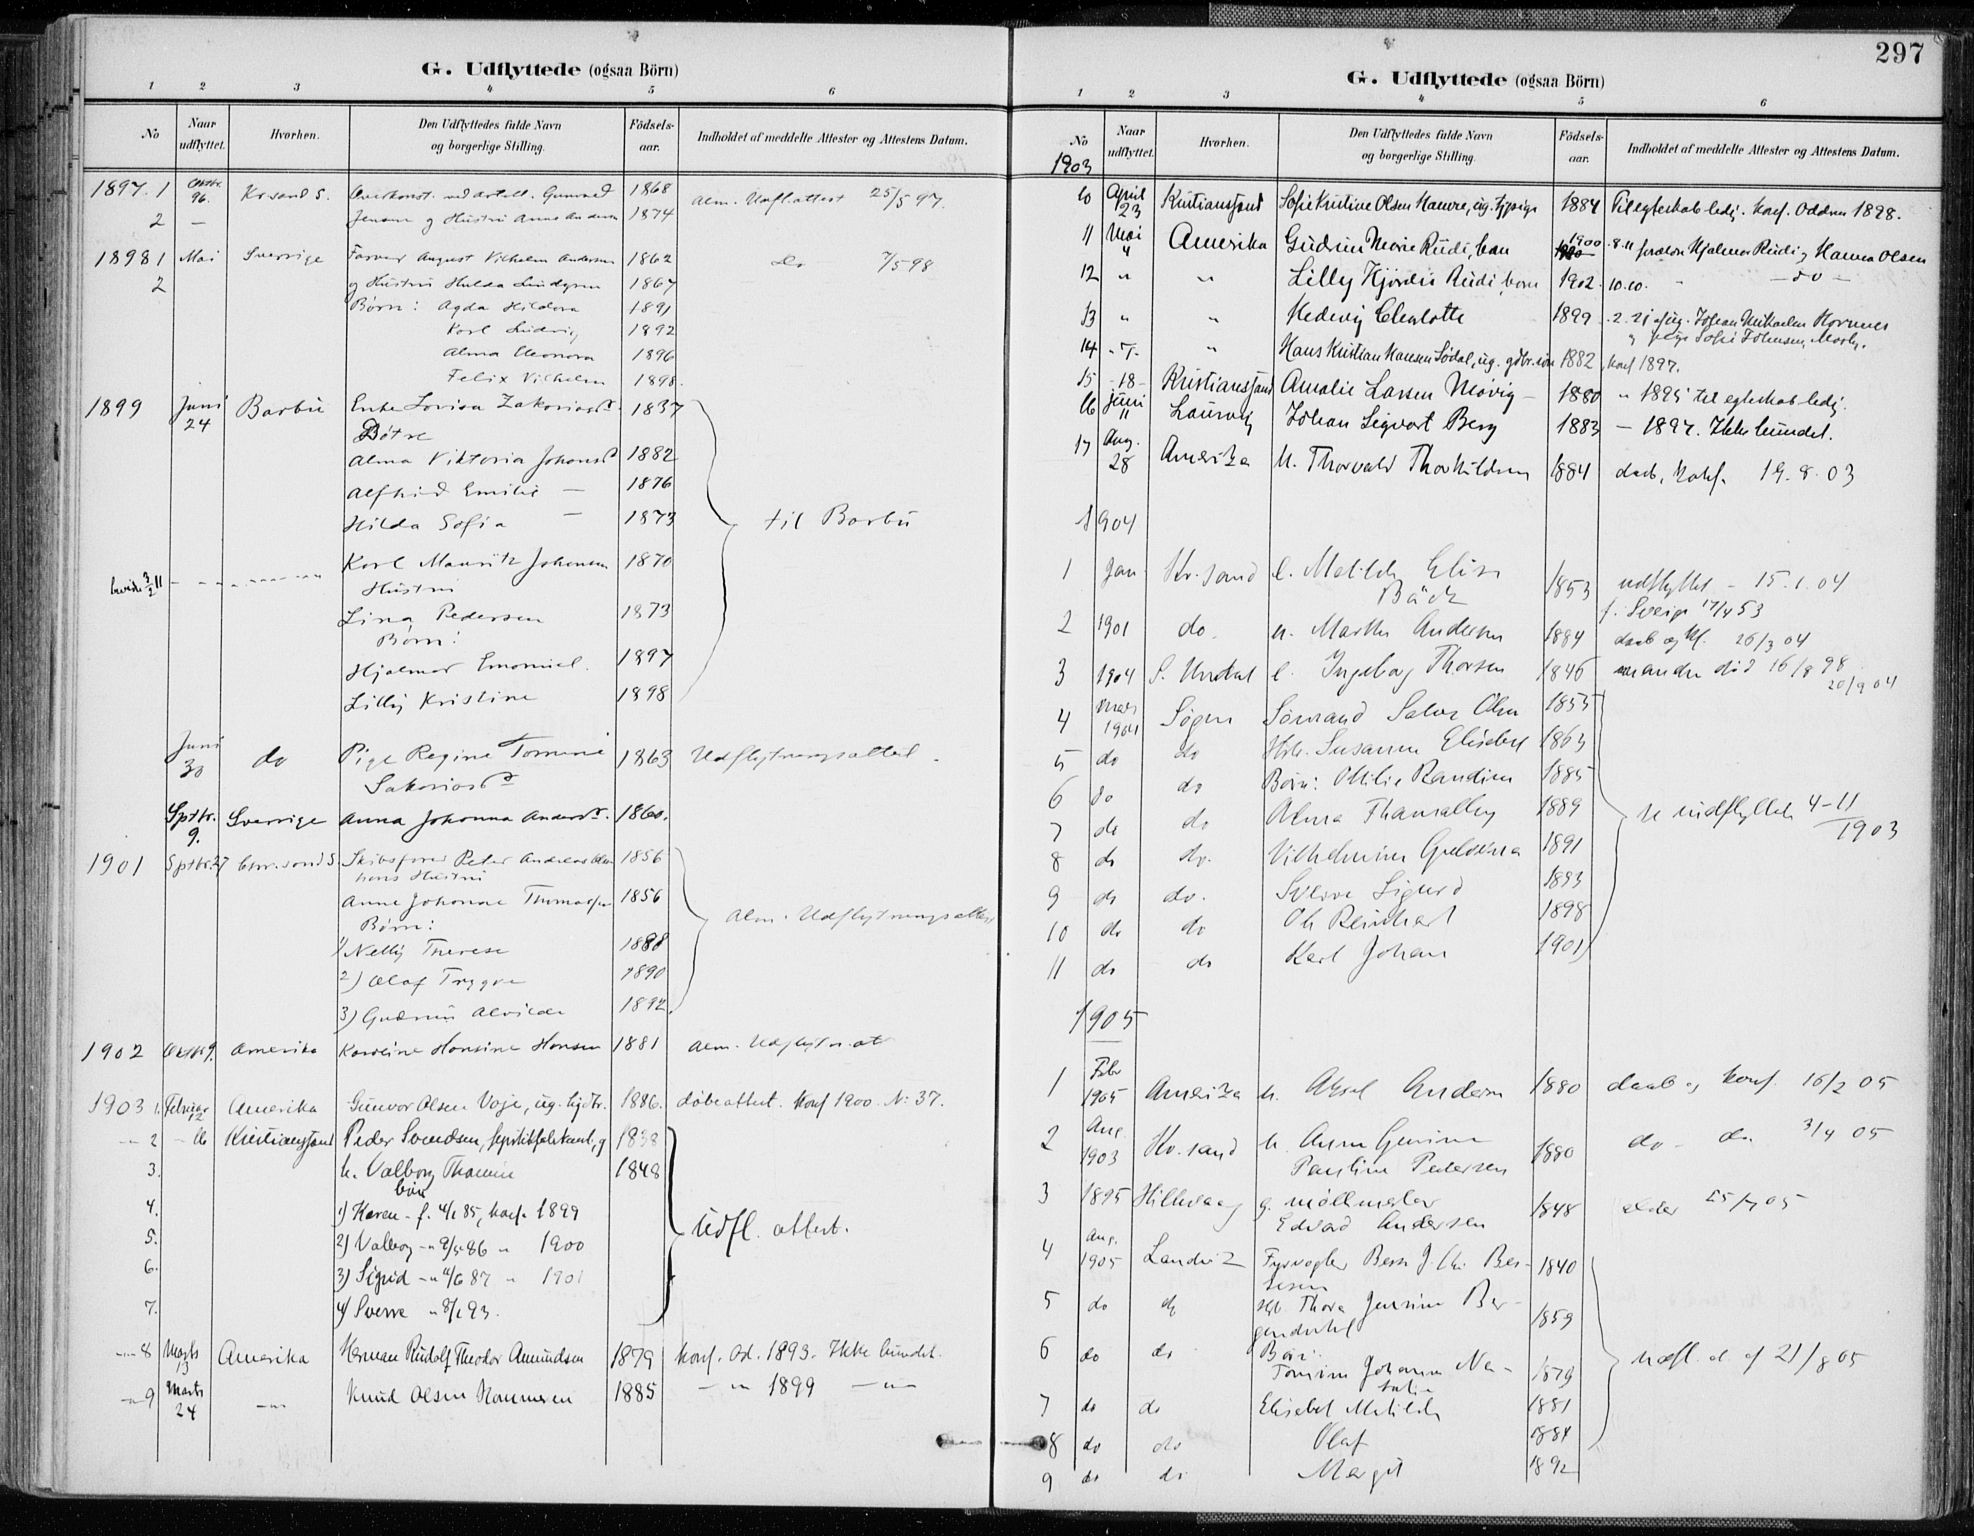 G. Udflyttede (ogsaa Börn)
1 2 3 4 5 6
No
Naar udflyttet.
Hvorhen.
Den Udflyttedes fulde Navn og borgerlige Stilling.
Födsels-aar.
Indholdet af meddelte Attester og Attestens Datum.
1897. 1 96. Kr.sand S. 1868 alm. Udfl.attest 25/5 97.
2 — Jensen og Hustru Anna Andersen 1874
1898 1 Mai Sverrige Farver August Vilhelm Andersen 1862 do 7/5 98
2 og Hustru Hulda Lindgren 1867
Børn: Agda Hildera 1891
Karl Ludvig 1892
Alma Eleonora 1896
Felix Vilhelm 1898.
1899 Juni 24 Barbu Enke Lovisa Zakariasd. 1837
Døtre
Alma Viktoria Johansd 1882
Alfhild Emilie — 1876
Hilda Sofia — 1873 til Barbu
Karl Mauritz Johansen 1870
Hustru
Lina Pedersen 1873
Børn:
Hjalmar Emanuel. 1897
Lilly Kristine 1898
Juni 30 do Pige Regine Tomine 1863 Udflytningsattest.
Sakariasd
Sptbr. 9. Sverrige Anna Johanna Andersd. 1860.
1901 Sptbr. 27 Chr.sand S Skibsfører Peter Andreas Olsen 1856
hans Hustru
Anne Johanne Thomasen 1856
Børn: alm. Udflytningsattest
1) Nelly Therese 1888
2) Olaf Trygve 1890
3) Gudrun Alvilde 1892.
1902 Oktbr 9. Amerika Karoline Hansine Hansen 1881 alm. Udflytn.att
1903 1. Februar 12 Amerika Gunvor Olsen Voje, ug. 1886. døbeattest. Konf 1900 N: 37.
— 2 - 16 Kristianssand Peder Svendsen, og 1838
3. h. Valborg Thomine 1848
børn
4. 1) Karen - f. 4/1 85, konf. 1899
5. 2) Valborg -"- 9/5 86 " 1900 Udfl. attest.
6. 3) Sigrid -"- 11/6 87 " 1901
7. 4) Sverre " 8/1 93.
—"—8 Marts 13 Amerika Herman Rudolf Theodor Amundsen 1879 konf. Od. 1893. Ikke bundet.
—"—9 Marts 24 —"— Knud Olsen Hammeren 1885 —"— 1899 —"—
297
G. Udflyttede (ogsaa Börn)
1 2 3 4 5 6
No
Naar udflyttet.
Hvorhen.
Den Udflyttedes fulde Navn og borgerlige Stilling.
Födsels-aar.
Indholdet af meddelte Attester og Attestens Datum.
1903
10 April 23 Kristianssand Sofie Kristine Olsen ug. 1884 Til egteskab ledig. Konf. Oddern 1898.
11 Mai " Amerika Gudrun Marie Rudi, barn 1900 8.11 forældre Hjalmar Rudi og Hanna Olsen
12 " " Lilly Hjørdis Rudi, barn 1902. 10.10. " — do —
13 " " Hedevig Charlotte 1899 .2.21
og Sofie Johnsen,
14 " Hans Kristian Hansen Sødal, ug. gdbr.søn 1882, konf 1897.
15 - 18 - Kristianssand Amalie Larsen Møvig — 1880 " 1895 til egteskab ledig.
16 Juni 11 Laurvig Johan Sigvart Berg 1883 — 1897. Ikke bundet.
17 Aug. 28 Amerika u. Thorvald Thorkildsen 1884 daab, konf. 19.8.03
1904
1 Jan Kr.sand e. Matilde Elise 1853 udflyttet — 15.1.04
Bäck f. Sverige 17/4 53
2 1901 do. u. Martha Andersen 1884 daab og kf. 26/3 04
3 1904 S. Undal e. Ingeborg Thorsen 1846 manden død 16/8 98. 20/9 04
4 1904 Søgne Sømand Salve Olsen 1853
5 do do Hstr. Susanne Elisabet 1863
6 do do Børn: Ottilie Randine 1885
7 do do Alma 1889 udflyttet 4-11 1903
8 do do. Vilhelmine 1891
9 do do. Sverre Sigurd 1893
10 do do Ole Reinhart 1898
11 do do Karl Johan 1901
1905
1 Febr 1905 Amerika u. Aksel Andersen 1880 daab og konf. 16/2 05
2 Aug 1903 Kr.sand u. Anna 1880 do — do. 3/4 05
Pauline Pedersen
3 1895 g. møllemester 1848 25/7 05
Edvard Andersen
4 Aug. 1905 Landvik Fyrvogter 1840
5 do do Hst. Thora Jensine 1859
6 do do Børn:
Tomine Johanne Natalie 1879 Udfl. a. af 21/8 05
7 do do Elisabet Matilde 1881
8 do do Olaf 1884
9 do do Margit 1892